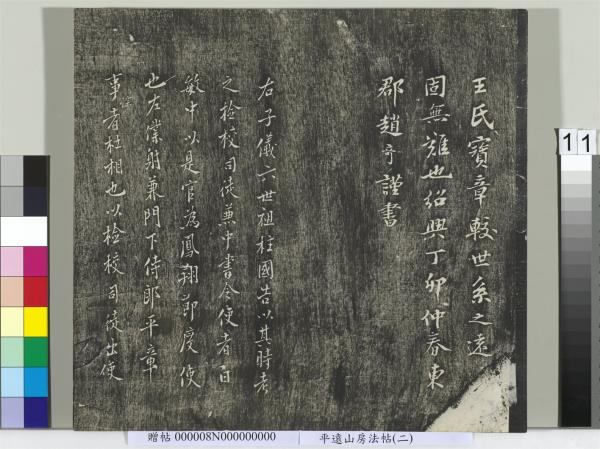 王氏寶章較世系之遠
固無雖也紹興丁卯仲春東
郡趙奇謹書
右子儀六世祖柱國告以其時考
之檢校司徒兼中書令使者白
敏中以是官為鳳翔節度使
也左僕射兼門下侍郎平章
事者杜相也以檢校司徒出使
11
贈帖 000008N000000000
平遠山房法帖(二)